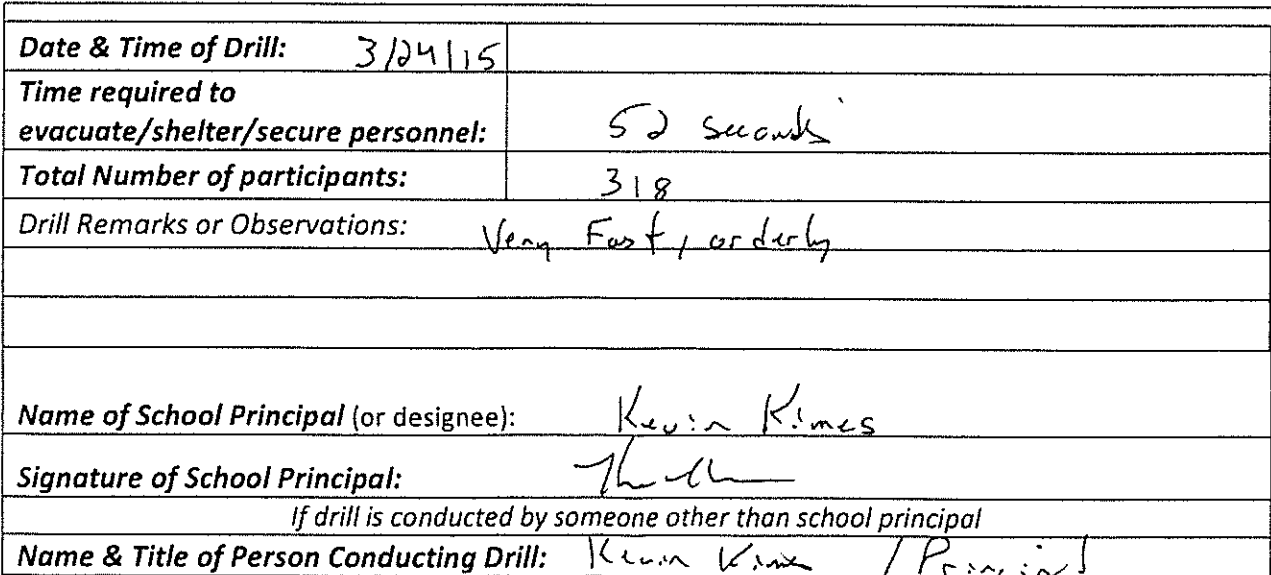 Date & Time of Drill: 3/24/15
Time required to
evacuate/shelter/secure personnel: 52 seconds
Total Number of participants: 318
Drill Remarks or Observations: Very Fast, orderly
Name of School Principal (or designee): Kevin Kimes
Signature of School Principal:
If drill is conducted by someone other than school principal
Name & Title of Person Conducting Drill: Kevin Kimes / Principal